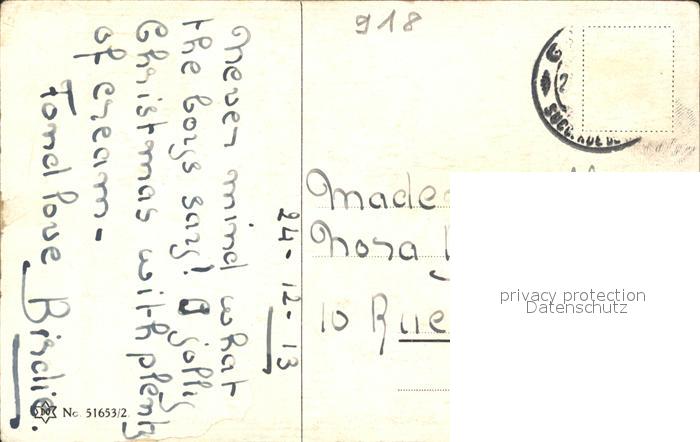 918
never mind what
the boys say! A jolly
Christmas with plenty
of cream-
Fond love Birdie.
24-12-13
No. 51653/2.
SUCC. RUE DE
Made
Nora
10 Rue
privacy protection
Datenschutz